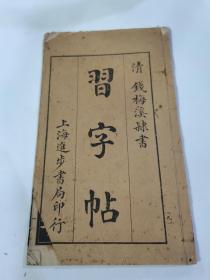 清 錢梅溪隸書
習字帖
上海進步書局印行